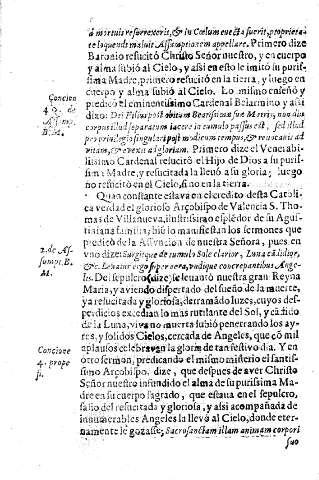 à mortuis resurrexerit, & in Cœlum euecta fuerit, propriera-
te loquendi maluit Assumptionem appellare. Primero dize
Baronio resucitò Christo Señor nuestro, y en cuerpo
y alma subiò al Cielo, y assi en esto le imitò su puris-
sima Madre, primero resucitò en la tierra, y luego en
cuerpo y alma subiò al Cielo. Lo mismo enseñò y
predicò el eminentissimo Cardenal Belarmino, y assi
dixo: Dei Filius post obitum Beatissimæ suæ Matris, non diu
corpus illud separatum iacere in tumulo passus est, sed illud
priuilegio singulari post modicum tempus, & reuocauit ad
vitam, & euexit ad gloriam. Primero dize el Venerabi-
lissimo Cardenal resucitò el Hijo de Dios a su puris-
sima Madre, y resucitada la lleuò a su gloria; luego
no resucitò en el Cielo, sino en la tierra.
Quan constante estaua en el credito desta Catoli-
ca verdad el glorioso Arçobispo de Valencia S. Tho-
mas de Villanueva, ilustrissimo esplēdor de su Agus-
tiniana familia; bié lo manifiestan los sermones que
predicò de la Assuncion de nuestra Señora, pues en
vno dize: Surgit que de tumulo Sole clarior, Luna cādidior,
&c. Leuatur ergo super æthera, vndique concrepantibus Ange-
lis. Del sepulcro (dize) se leuantò nuestra gran Reyna
Maria, y aviendo dispertado del sueño de la muerte,
ya resucitada y gloriosa, derramādo luzes, cuyos des-
perdicios excedian lo mas rutilante del Sol, y cādido
de la Luna, viva no muerta subiò penetrando los ay-
res, y solidos Cielos, cercada de Angeles, que cō mil
aplausos celebravan la gloria de tan festivo dia. Y en
otro sermon, predicando el mismo misterio el santis-
simo Arçobispo, dize, que despues de aver Christo
Señor nuestro infundido el alma de su purissima Ma-
dre en su cuerpo sagrado, que estaua en el sepulcro,
saliò del resucitada y gloriosa, y assi acompañada de
innumerables Angeles la llevò al Cielo, donde eter-
namente le gozasse; Sacrosanctam illam animam corpori
suo
Concion
42. de
Assump.
B.M.
2. de As-
sumpt. B.
M.
Concione
4. prope
fi.